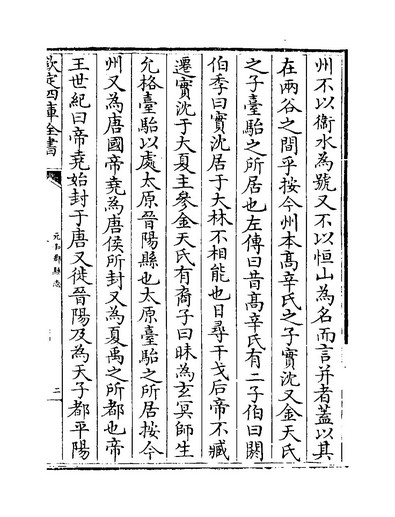 州不以衛水為號又不以恒山為名而言并者蓋以其
在兩谷之間乎按今州本髙辛氏之子實沈又金天氏
之子臺駘之所居也左傳曰昔髙辛氏有二子伯曰閼
伯季曰實沈居于大林不相能也日尋干戈后帝不臧
遷實沈于大夏主參金天氏有裔子曰昧為玄冥師生
允格臺駘以處太原晉陽縣也太原臺駘之所居按今
州又為唐國帝堯為唐侯所封又為夏禹之所都也帝
王世紀曰帝堯始封于唐又徙晉陽及為天子都平陽
欽定四庫全書
元和郡縣志
二